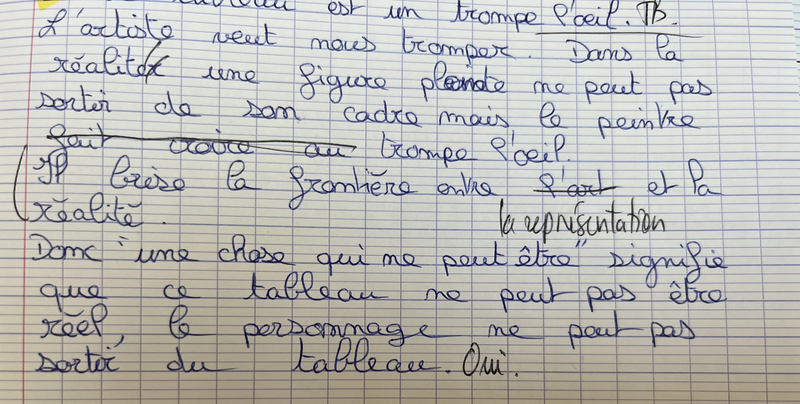 tableau est un trompe l'oeil. TB.
L'artiste veut nous tromper. Dans la
réalité une figure peinte ne peut pas
sortir de son cadre mais le peintre
fait croire au trompe l'oeil.
Il brise la frontière entre l'art et la
réalité. la représentation
Donc "une chose qui ne peut être" signifie
que ce tableau ne peut pas être
réel, le personnage ne peut pas
sortir du tableau. Oui.